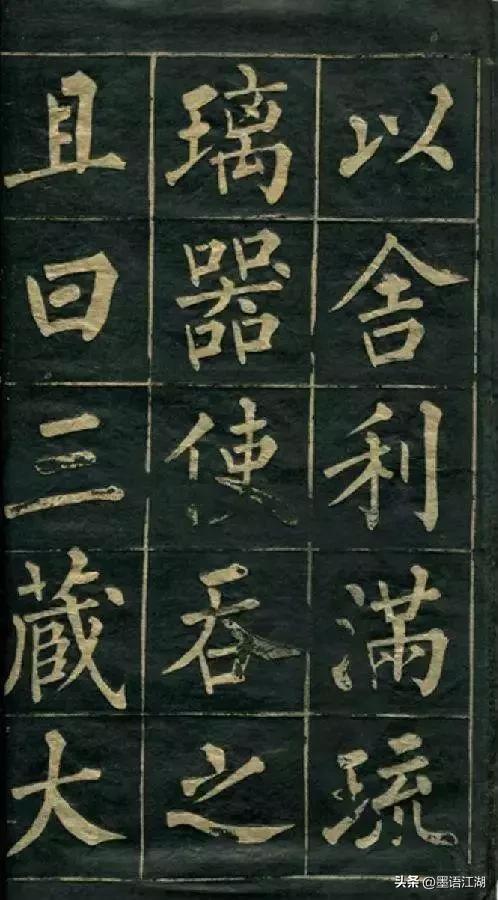 以舍利满琉
璃器使吞之
且曰三藏大
头条@墨语江湖